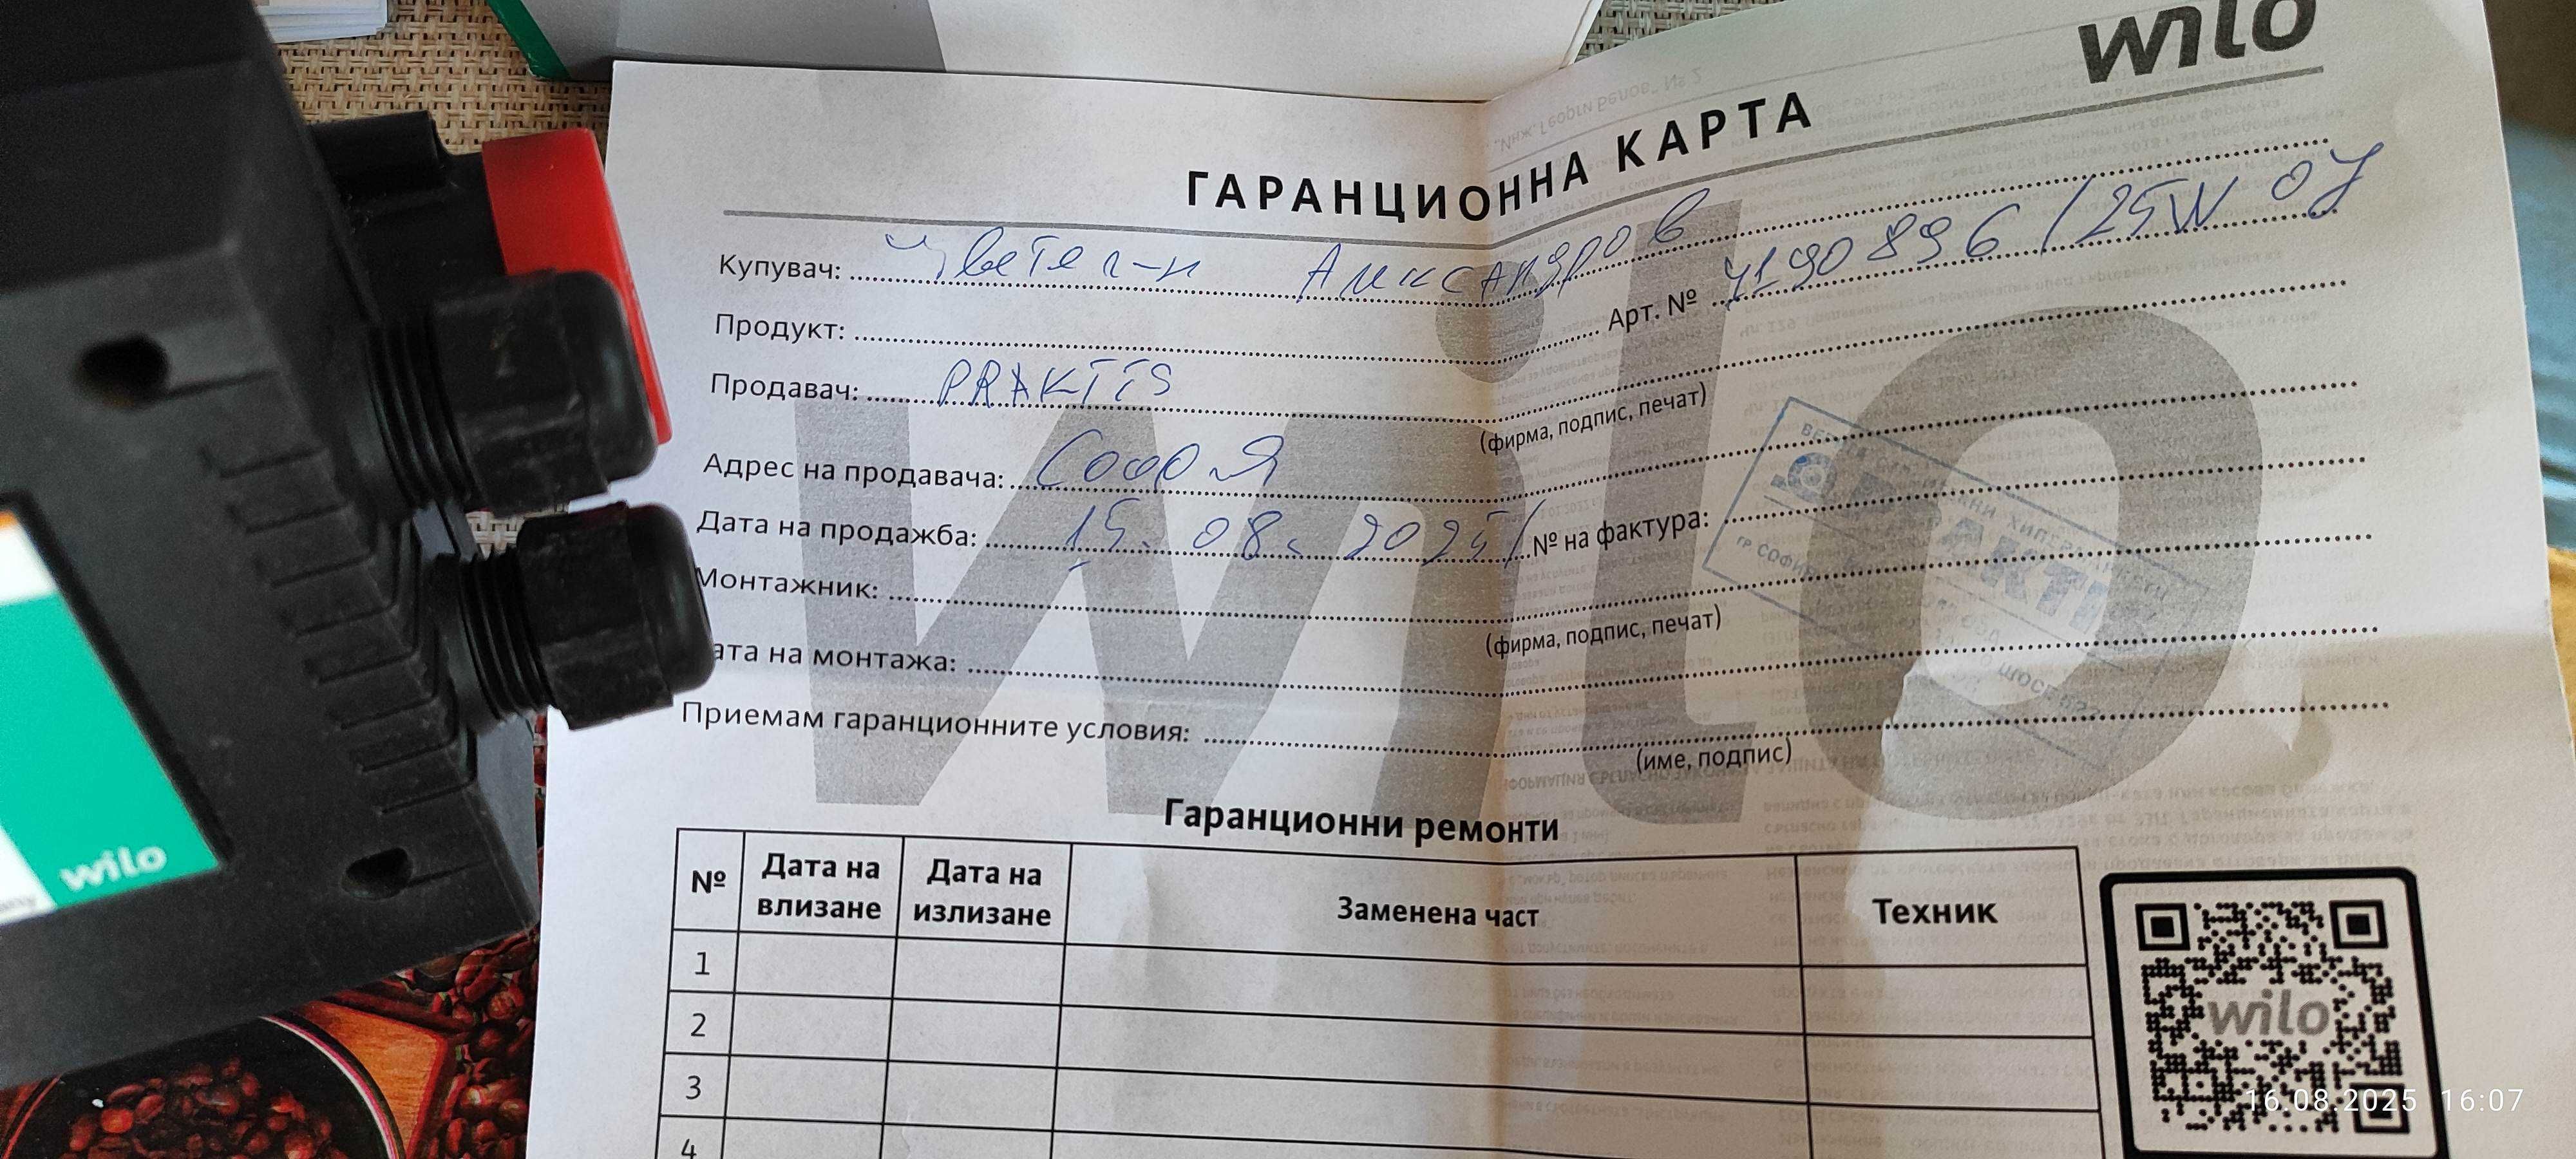 wilo
ГАРАНЦИОННА КАРТА
Купувач: Цветелин Александров
Продукт: Арт. № 4190896 / 25W 07
Продавач: PRAKTIS
(фирма, подпис, печат)
Адрес на продавача: София
Дата на продажба: 15.08.2025/ № на фактура:
Монтажник:
(фирма, подпис, печат)
ата на монтажа:
Приемам гаранционните условия:
(име, подпис)
wilo
Гаранционни ремонти
№ Дата на влизане Дата на излизане Заменена част Техник
1
2
3
4
wilo
wilo
16.08.2025 16:07